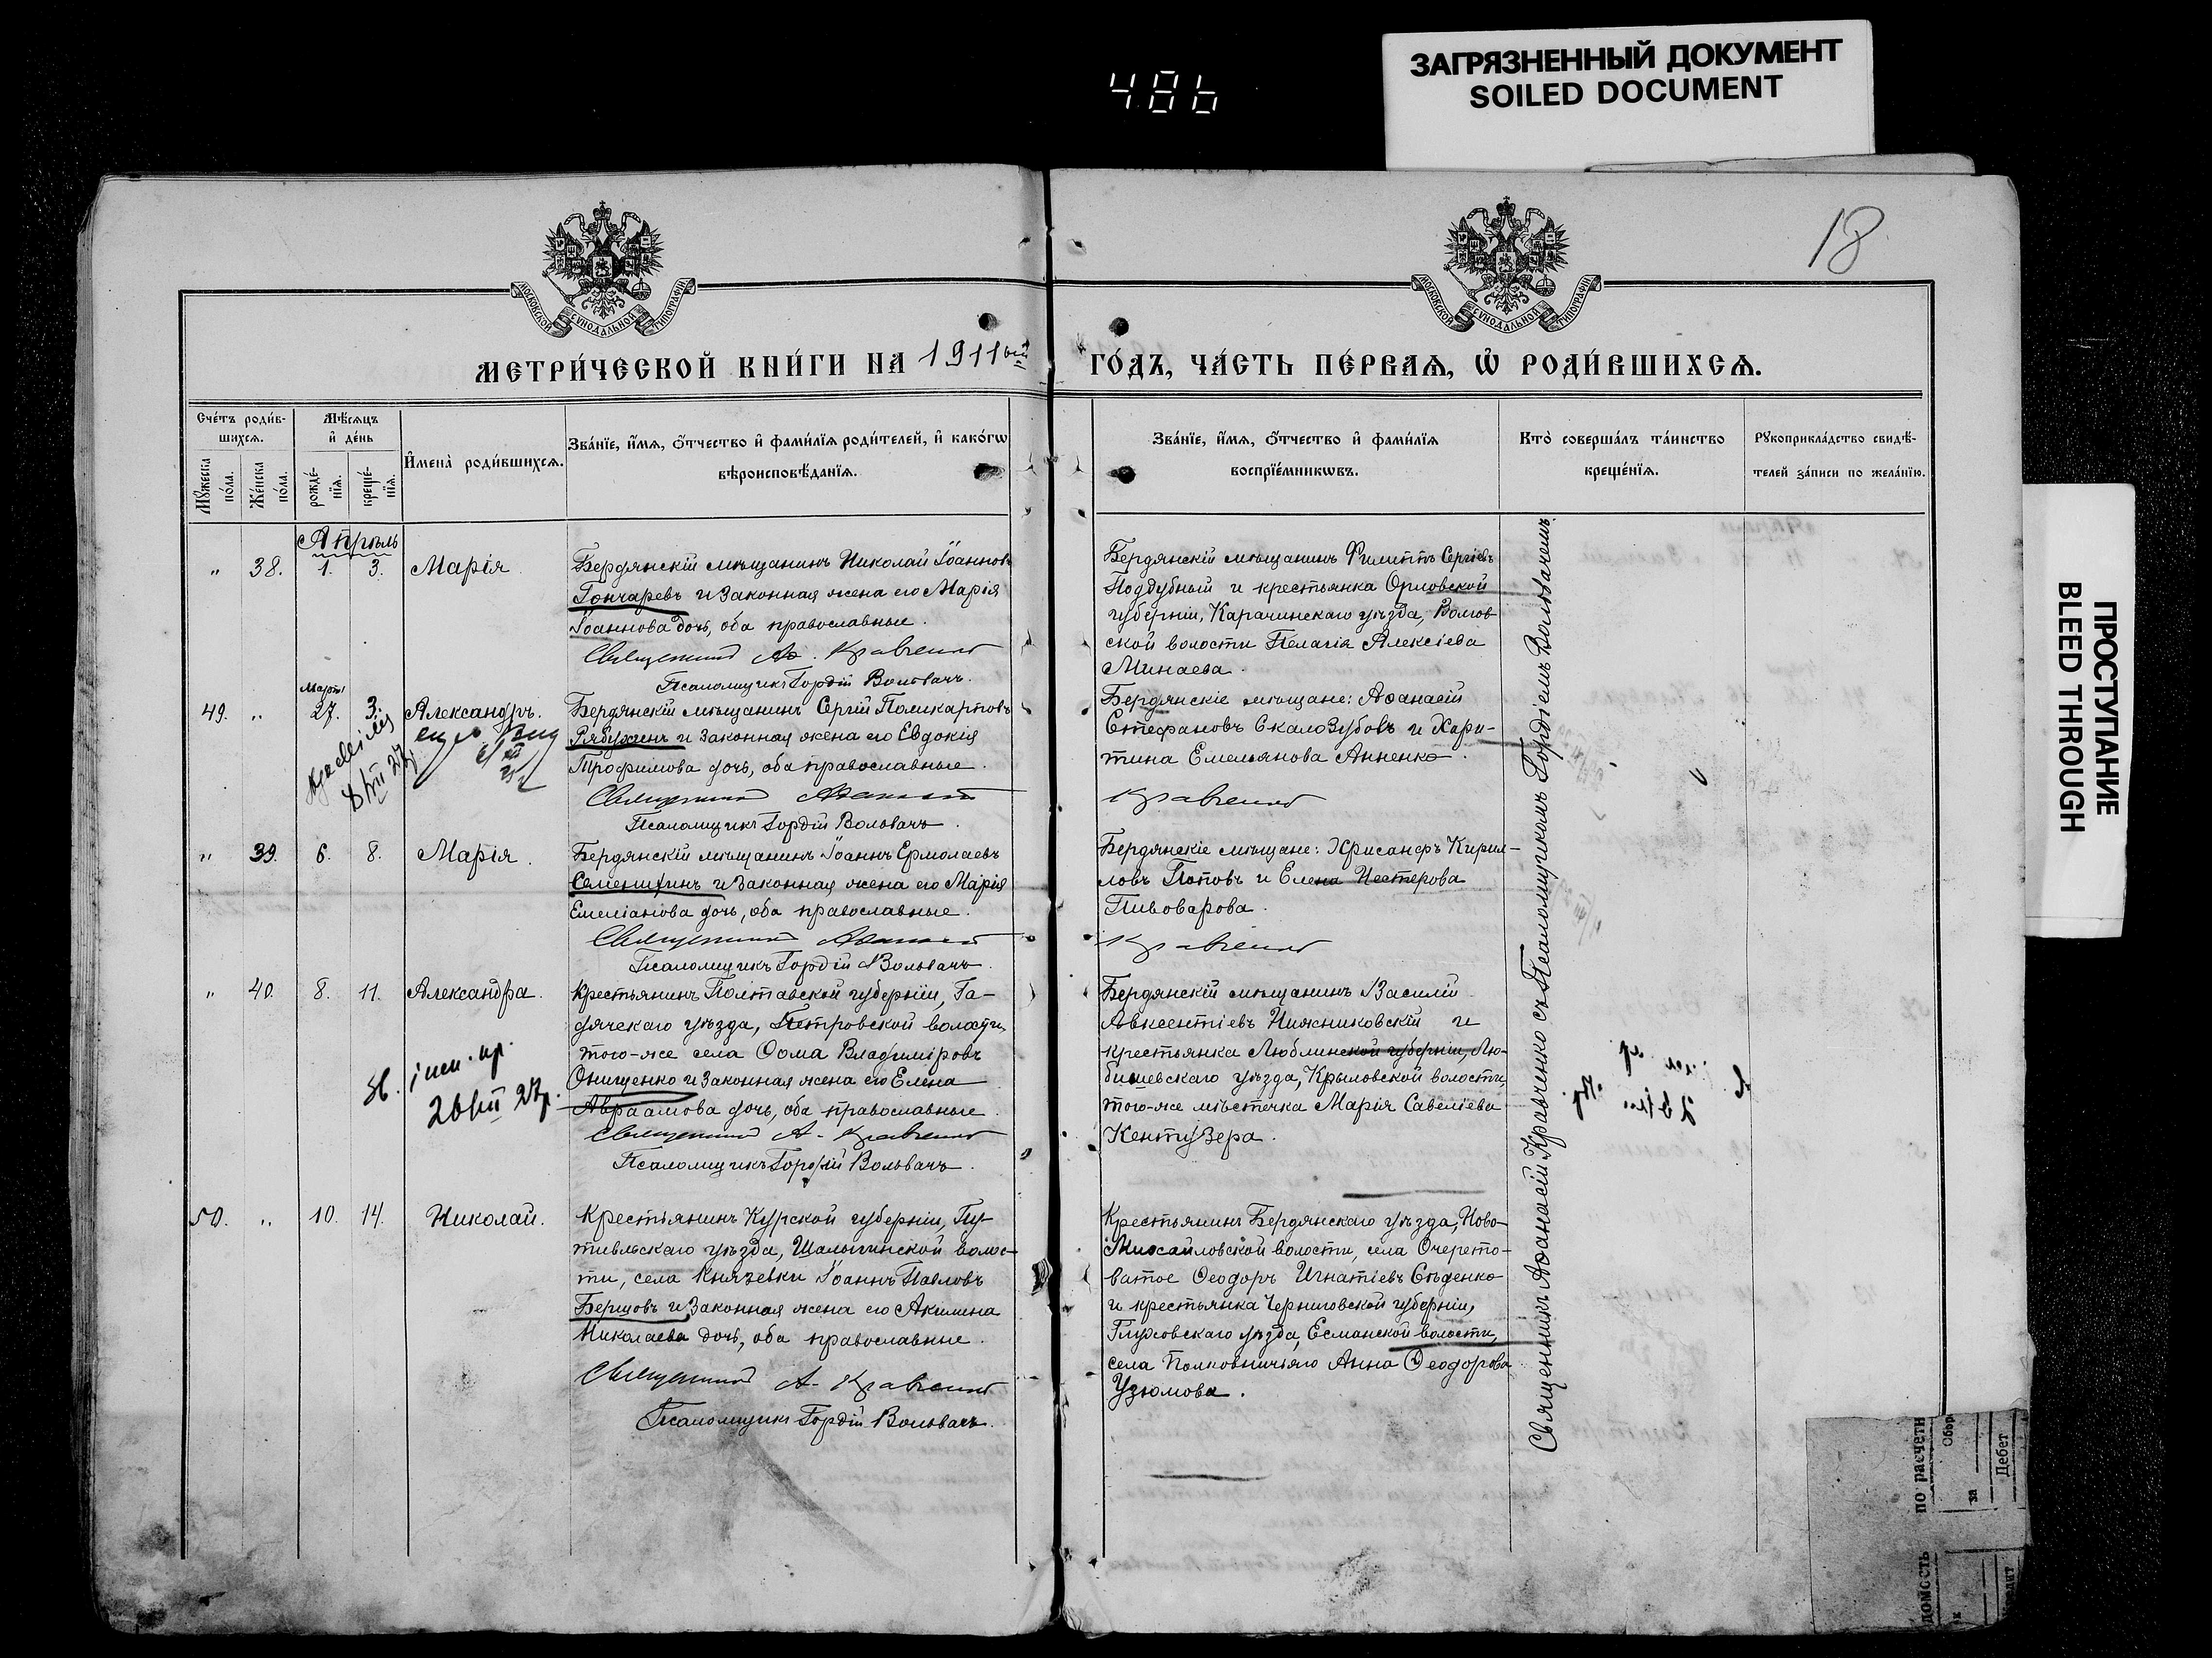 486
ЗАГРЯЗНЕННЫЙ ДОКУМЕНТ
SOILED DOCUMENT
ПРОСТУПАНИЕ
BLEED THROUGH
18
МОСКОВСКОЙ СѴНОДАЛЬНОЙ ТИПОГРАФІИ
МОСКОВСКОЙ СѴНОДАЛЬНОЙ ТИПОГРАФІИ
МЕТРИ́ЧЕСКОЙ КНИ́ГИ НА 1911ый ГО́ДЪ, ЧА́СТЬ ПЕ́РВАѦ, Ѽ РОДИ́ВШИХСѦ.
Сче́тъ роди́в-
шихсѧ.
Мꙋ́жеска
по́ла.
Же́нска
по́ла.
Мѣ́сѧцъ
и҆ де́нь
рожде́-
нїѧ.
креще́-
нїѧ.
И҆мена̀ роди́вшихсѧ.
Зва́нїе, и҆́мѧ, ѻ҆́тчество и҆ фами́лїѧ роди́телей, и҆ како́гѡ
вѣроисповѣ́данїѧ.
Зва́нїе, и҆́мѧ, ѻ҆́тчество и҆ фами́лїѧ
воспрїе́мникѡвъ.
Кто̀ соверша́лъ та́инство
креще́нїѧ.
Рꙋкоприкла́дство свидѣ́-
телей за́писи по жела́нїю.
Апрѣль
„ 38. 1. 3. Марія
Бердянскій мѣщанинъ Николай Іоанновъ
Гончаревъ и законная жена его Марія
Іоаннова дочь, оба православные.
Священникъ Аѳ. Кравченко
Псаломщикъ Гордій Вольвачъ.
Бердянскій мѣщанинъ Филиппъ Сергіевъ
Поддубный и крестьянка Орловской
губерніи, Карачинскаго уѣзда,
ской волости Пелагія Алексіева
Минаева.
Мартъ
49. „ 27. 3. Александръ.
Бердянскій мѣщанинъ Сергій Поликарповъ
Рябухинъ и законная жена его Евдокія
Трофимова дочь, оба православные.
Священникъ Аѳанасій
Псаломщикъ Гордій Вольвачъ.
Бердянскіе мѣщане: Аѳанасій
Стефановъ Скалозубовъ и Хари-
тина Емельянова Анненко.
Кравченко
„ 39. 6. 8. Марія.
Бердянскій мѣщанинъ Іоаннъ Ермолаевъ
Семенихинъ и законная жена его Марія
Емеліанова дочь, оба православные.
Священникъ Аѳанасій
Псаломщикъ Гордій Вольвачъ.
Бердянскіе мѣщане: Хрисанфъ Кирил-
ловъ Поповъ и Елена Нестерова
Пивоварова.
Кравченко
„ 40. 8. 11. Александра.
Крестьянинъ Полтавской губерніи, Га-
дячскаго уѣзда, Петровской волости,
того-же села Ѳома Владиміровъ
Онищенко и законная жена его Елена
Авраамова дочь, оба православные.
Священникъ А. Кравченко
Псаломщикъ Гордій Вольвачъ.
Бердянскій мѣщанинъ Василій
Авксентіевъ Нижниковскій и
крестьянка Люблинской губерніи,
уѣзда, Крыловской волости,
того-же мѣстечка Марія Савеліева
Кентузера.
50. „ 10. 14. Николай.
Крестьянинъ Курской губерніи, Пу-
тивльскаго уѣзда, Шалыгинской волос-
ти, села Князевки Іоаннъ Павловъ
Берцовъ и законная жена его Акилина
Николаева дочь, оба православные.
Священникъ А. Кравченко
Псаломщикъ Гордій Вольвачъ.
Крестьянинъ Бердянскаго уѣзда, Ново-
Михайловской волости, села Очерето-
ватое Ѳеодоръ Игнатіевъ Сѣденко
и крестьянка Черниговской губерніи,
Глуховскаго уѣзда, Есманской волости,
села Полковничьяго Анна Ѳеодорова
Узюмова.
Священникъ Аѳанасій Кравченко съ Псаломщикомъ Гордіемъ Вольвачемъ.
по расчетн
Сбор
за
Дебет
домость